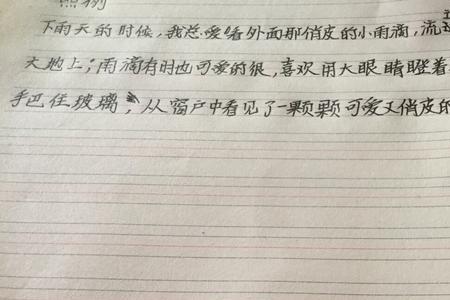 下雨天的时候,我总爱看外面那俏皮的小雨滴,流
大地上;雨滴有时也可爱的很,喜欢用大眼睛瞪着
手巴住玻璃,从窗户中看见了一颗颗可爱又俏皮的